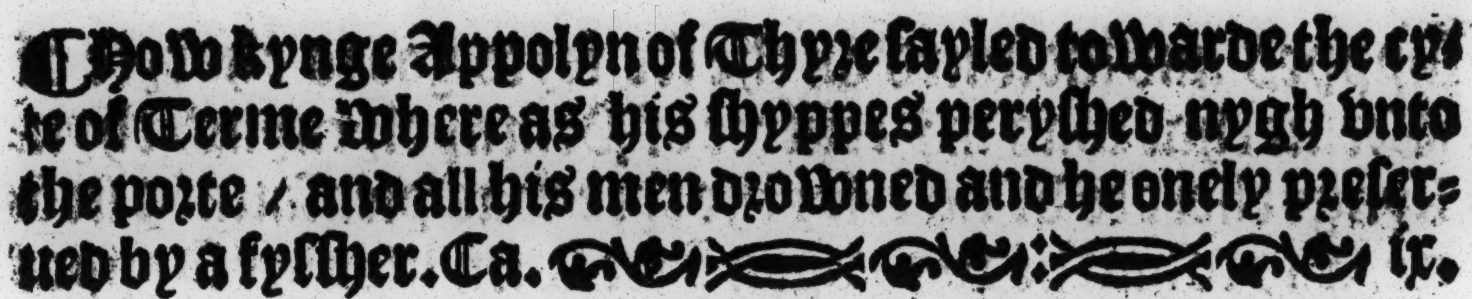 ¶ How kynge Appolyn of Thyre sayled towarde the cy⸗
te of Terme where as his shyppes peryshed nygh vnto
the porte / and all his men drowned and he onely preser⸗
ued by a fyssher. Ca. ix.